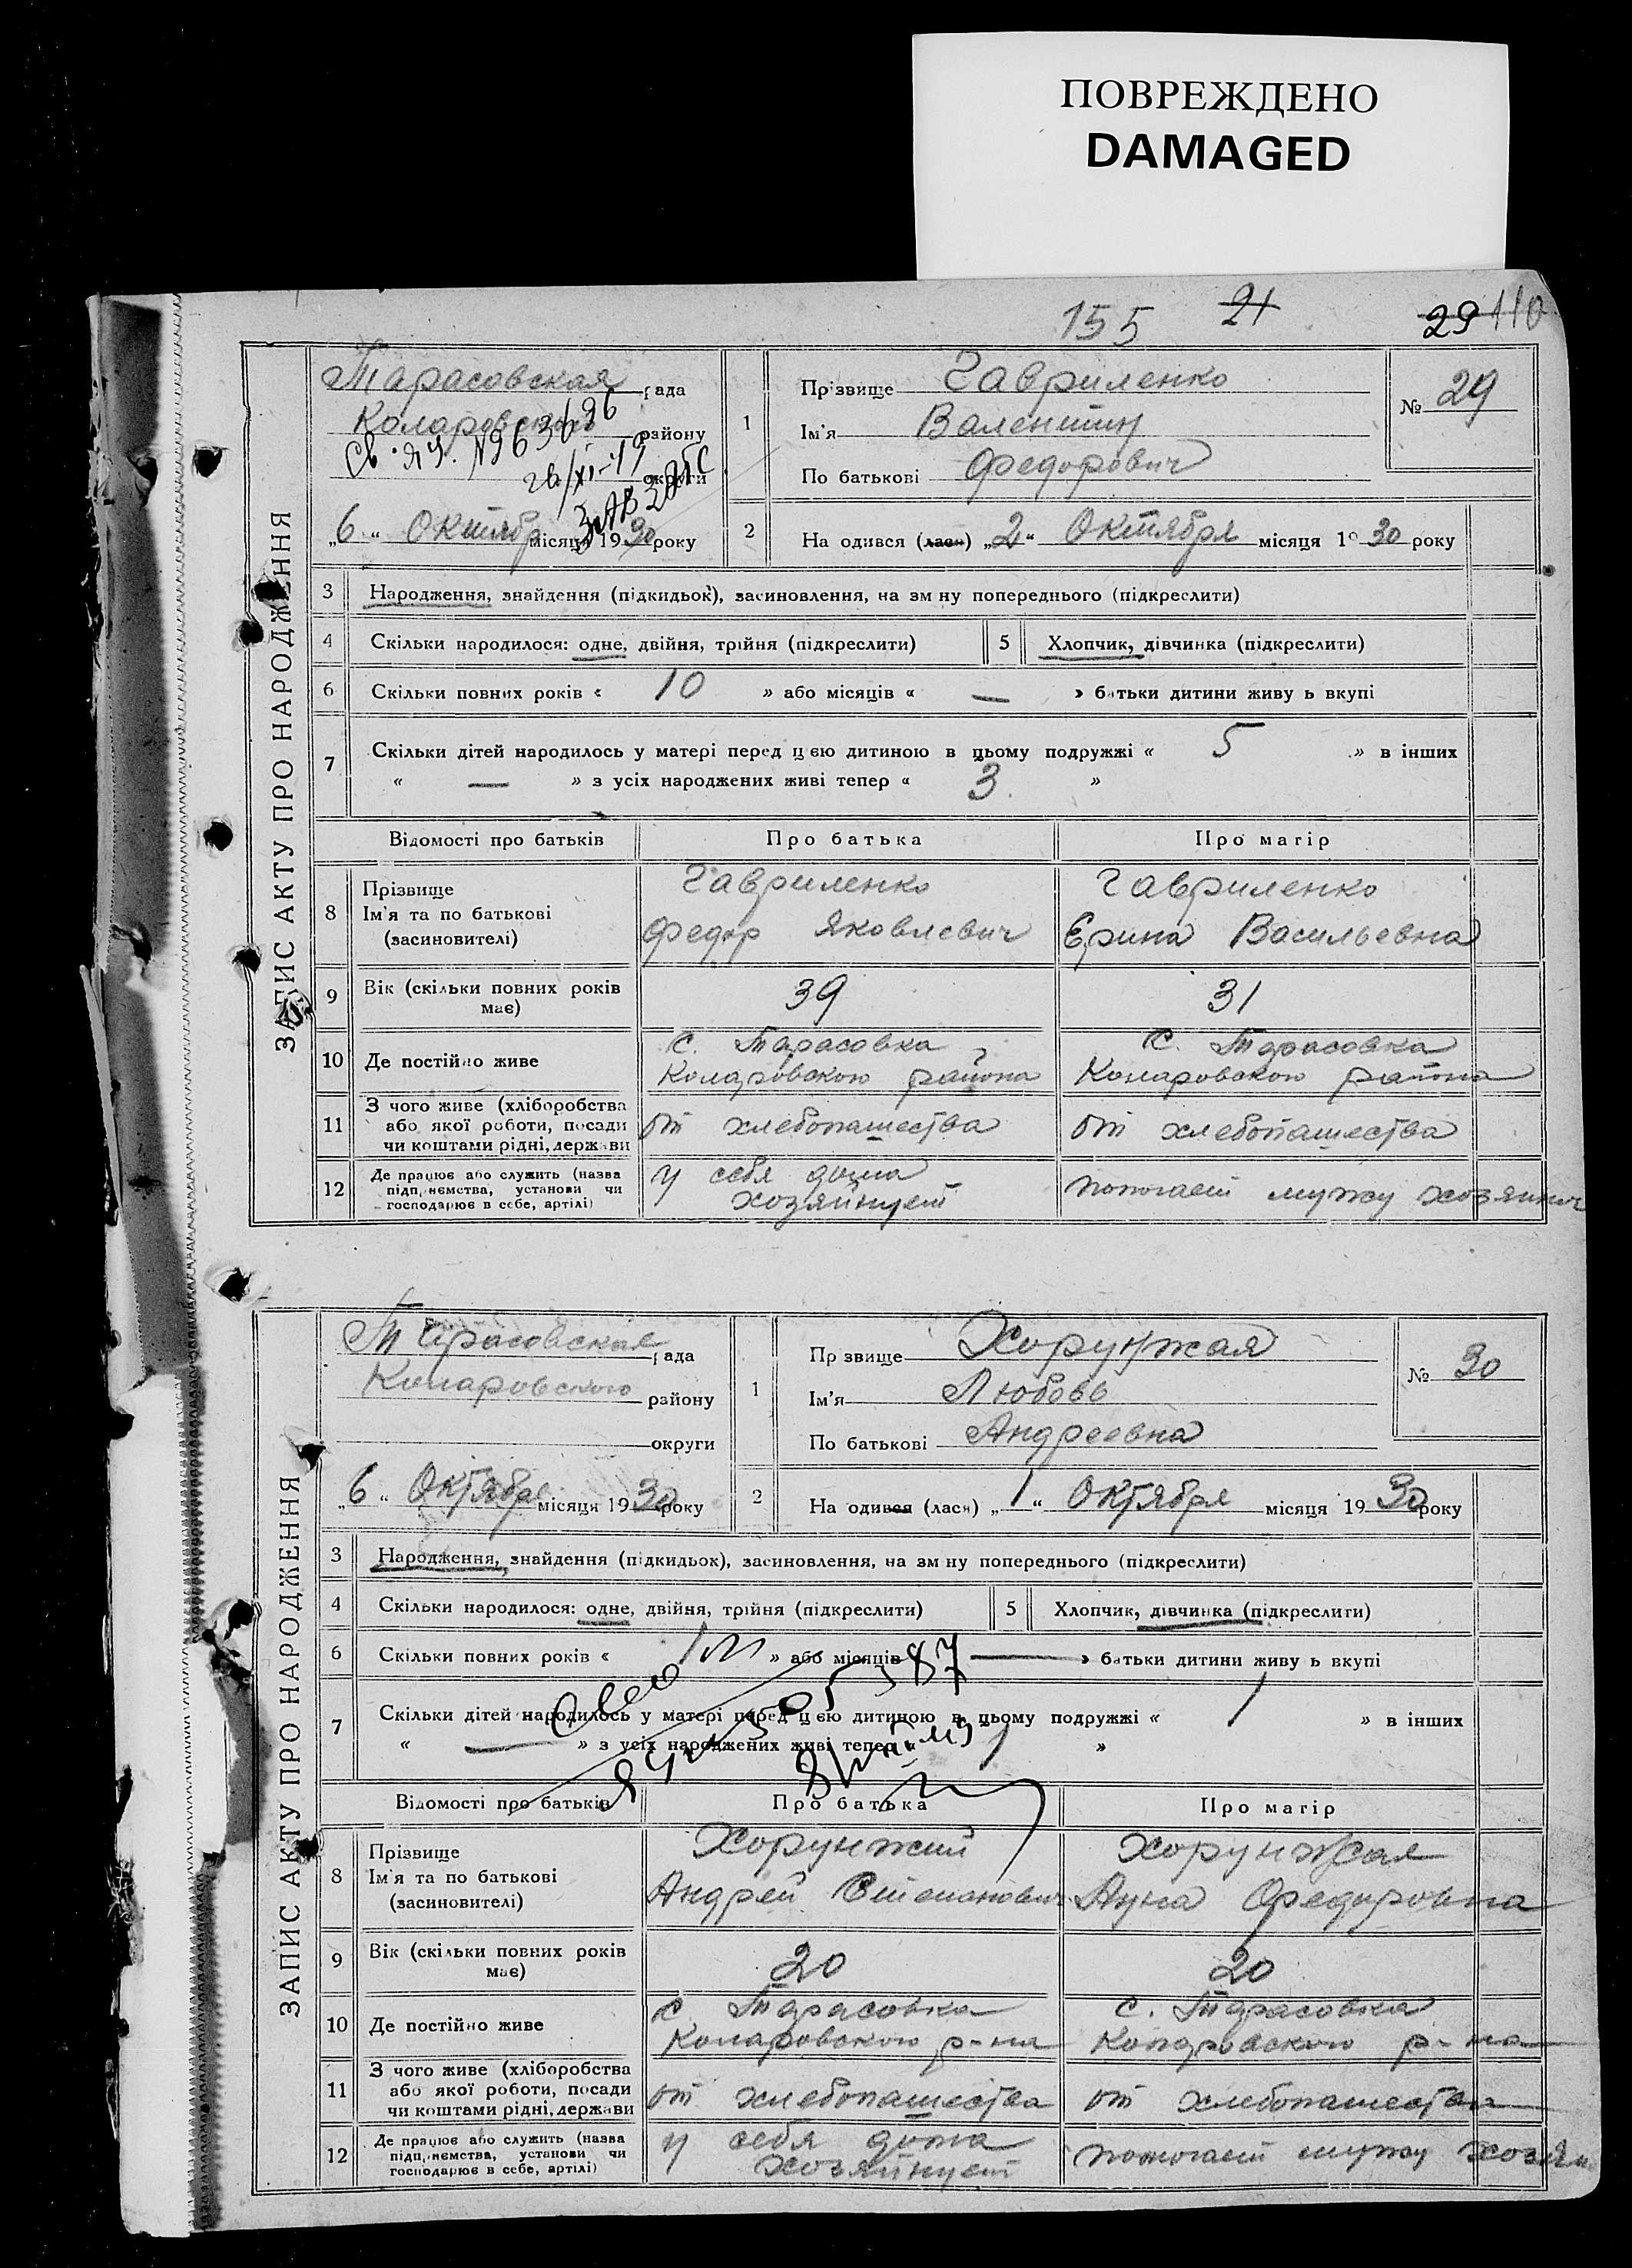 ПОВРЕЖДЕНО
DAMAGED
155 21 29 110
ЗАПИС АКТУ ПРО НАРОДЖЕННЯ
Тарасовская рада
Коларовского району
округи
„6“ Октябр місяця 1930 року
1
Прізвище Гавриленко
Ім'я Валентин
По батькові Федорович
№ 29
2
На одився (лася) „2“ Октября місяця 1930 року
3 Народження, знайдення (підкидьок), засиновлення, на зм ну попереднього (підкреслити)
4 Скільки народилося: одне, двійня, трійня (підкреслити) 5 Хлопчик, дівчинка (підкреслити)
6 Скільки повних років « 10 » або місяців « — » батьки дитини живу ь вкупі
7 Скільки дітей народилось у матері перед цією дитиною в цьому подружжі « 5 » в інших
« — » з усіх народжених живі тепер « 3 »
Відомості про батьків Про батька Про матір
8 Прізвище Гавриленко Гавриленко
Ім'я та по батькові Федор Яковлевич Ерина Васильевна
(засиновителі)
9 Вік (скільки повних років має) 39 31
10 Де постійно живе с. Тарасовка с. Тарасовка
Коларовского района Коларовского района
11 З чого живе (хліборобства
або якої роботи, посади от хлебопашества от хлебопашества
чи коштами рідні, держави
12 Де працює або служить (назва у себя дома
підприємства, установи чи хозяйнует помогает мужу
господарює в себе, артілі)
ЗАПИС АКТУ ПРО НАРОДЖЕННЯ
Тарасовская рада
Коларовского району
округи
„6“ Октября місяця 1930 року
1
Пр звище Хорунжая
Ім'я Любовь
По батькові Андреевна
№ 30
2
На одився (лася) „1“ Октября місяця 1930 року
3 Народження, знайдення (підкидьок), засиновлення, на зм ну попереднього (підкреслити)
4 Скільки народилося: одне, двійня, трійня (підкреслити) 5 Хлопчик, дівчинка (підкреслити)
6 Скільки повних років « » або місяців — » батьки дитини живу ь вкупі
7 Скільки дітей народилось у матері перед цією дитиною в цьому подружжі « 1 » в інших
« — » з усіх народжених живі тепер « 1 »
Відомості про батьків Про батька Про матір
8 Прізвище Хорунжий Хорунжая
Ім'я та по батькові Андрей Степанович Анна Федоровна
(засиновителі)
9 Вік (скільки повних років має) 20 20
10 Де постійно живе с. Тарасовка с. Тарасовка
Коларовского р-на Коларовского р-на
11 З чого живе (хліборобства
або якої роботи, посади от хлебопашества от хлебопашества
чи коштами рідні, держави
12 Де працює або служить (назва у себя дома
підприємства, установи чи хозяйнует помогает мужу
господарює в себе, артілі)